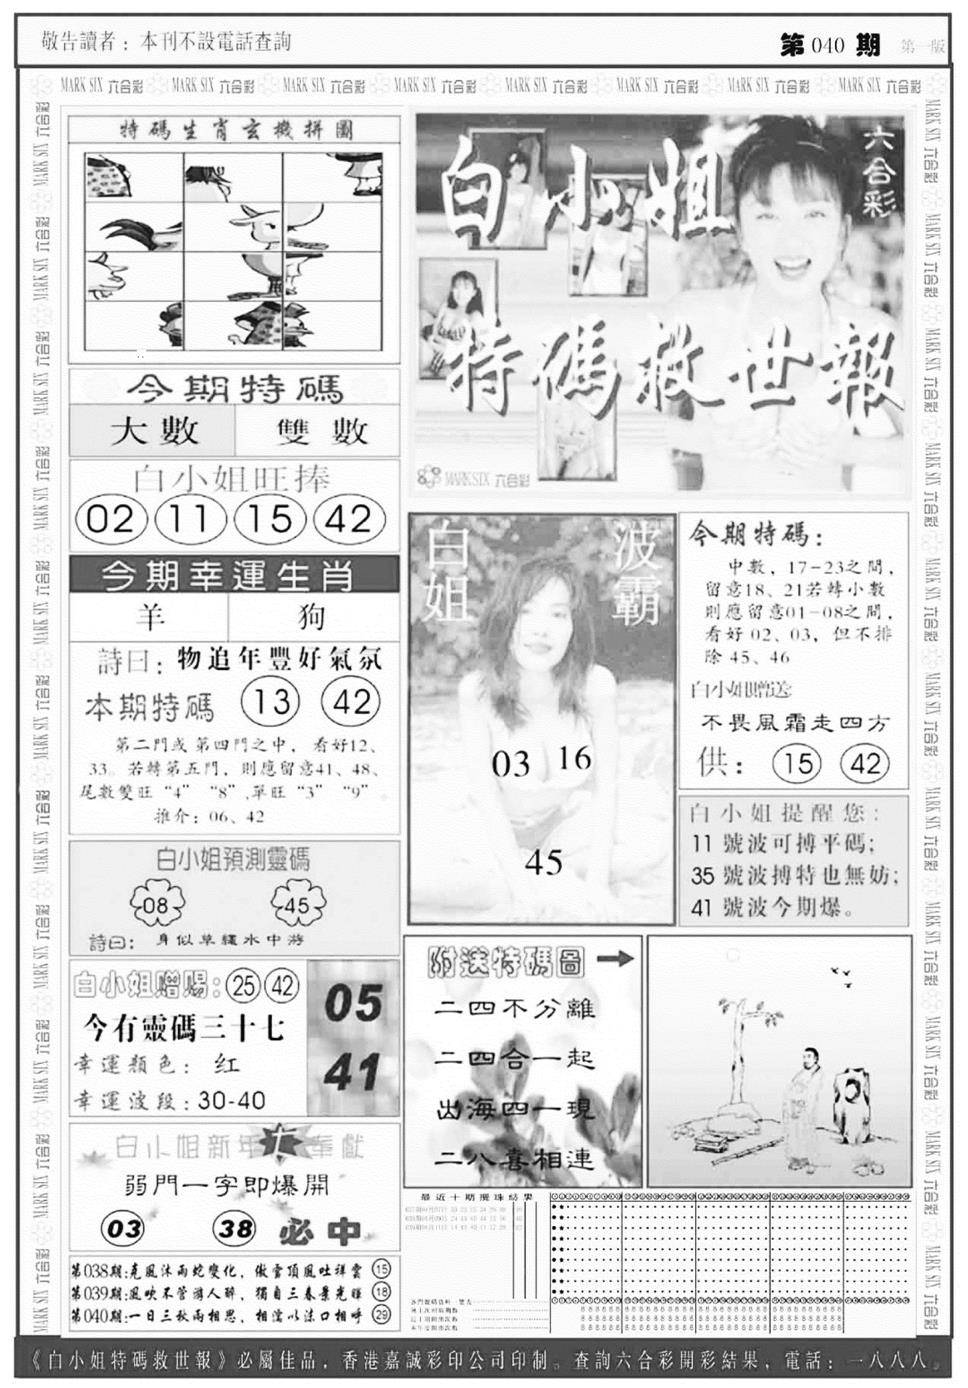 敬告讀者：本刊不設電話查詢
第 040 期 第一版
MARK SIX 六合彩 MARK SIX 六合彩 MARK SIX 六合彩 MARK SIX 六合彩 MARK SIX 六合彩 MARK SIX 六合彩 MARK SIX 六合彩 MARK SIX 六合彩
特碼生肖玄機拼圖
今期特碼
大數 雙數
白小姐旺捧
02 11 15 42
今期幸運生肖
羊 狗
詩曰：物追年豐好氣氛
本期特碼 13 42
第二門或第四門之中，看好12、
33。若轉第五門，則應留意41、48、
尾數雙旺“4”“8”,單旺“3”“9”。
推介：06、42
白小姐預測靈碼
08 45
詩曰：身似草繩水中游
白小姐赠赐：25 42
今有靈碼三十七
幸運顏色：红
幸運波段：30-40
05
41
白小姐新年奉獻
弱門一字即爆開
03 38 必中
第038期:克風沐雨蛇變化，傲雪頂風吐祥雲 15
第039期:風吹不管游人醉，獨自三春景光暉 18
第040期:一日三秋兩相思，相濡以沫口相呼 29
六合彩
白小姐
特碼救世報
MARK SIX 六合彩
白姐 波霸
03 16
45
今期特碼：
中數，17-23之間，
留意18、21若轉小數
則應留意01-08之間，
看好 02、03，但不排
除 45、46
白小姐贈送
不畏風霜走四方
供：15 42
白小姐提醒您：
11 號波可搏平碼；
35 號波搏特也無妨；
41 號波今期爆。
附送特碼圖
二四不分離
二四合一起
出海四一現
二八喜相連
最近十期攪珠結果
《白小姐特碼救世報》必屬佳品，香港嘉誠彩印公司印制。查詢六合彩開彩結果，電話：一八八八。